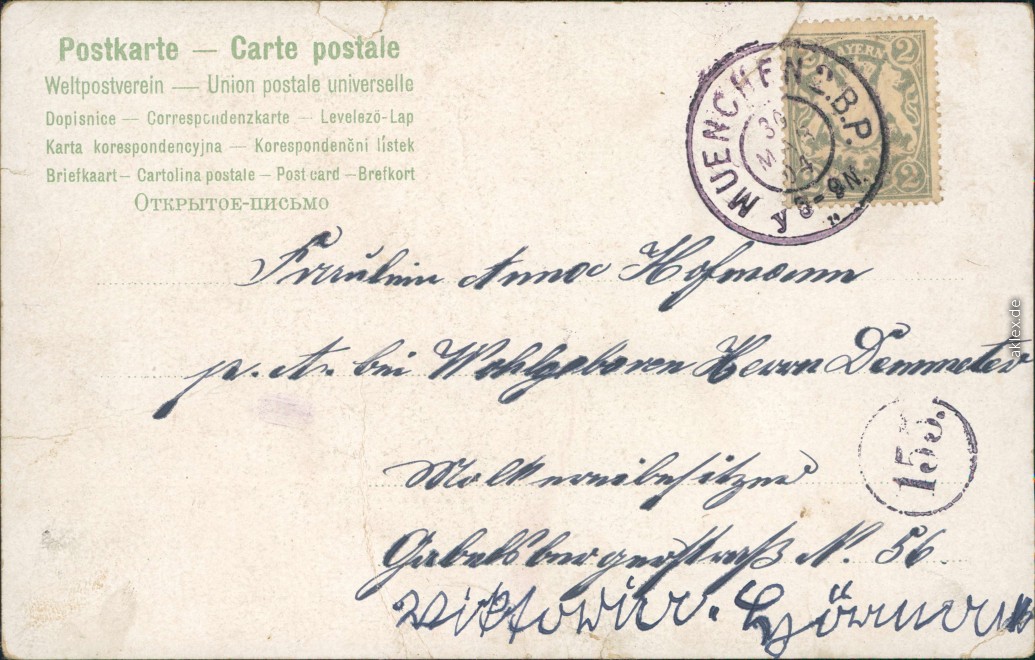 Postkarte — Carte postale
Weltpostverein — Union postale universelle
Dopisnice — Correspondenzkarte — Levelező-Lap
Karta korespondencyjna — Korespondenční lístek
Briefkaart — Cartolina postale — Post card — Brefkort
Открытое-письмо
BAYERN
2
2
MUENCHEN 2.B.P.
30
MAI
04
8-9N.
Fräulein Anna Hofmann
p. A. bei Wohlgeboren Herrn Demmeter
155.
Molkereibesitzer
Gabelsbergerstraß N. 56
aklex.de